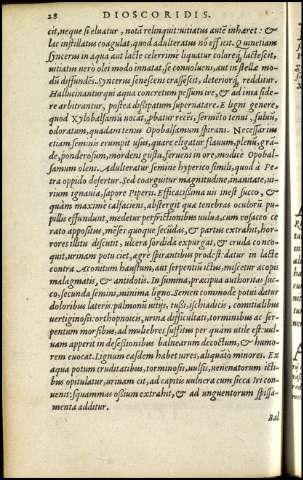 28 DIOSCORIDIS.
cit, neque si eluatur, nota relinquit: uitiatus autē inhæret: &
lac instillatus coagulat, quod adulteratus nō efficit. Quinetiam
syncerus in aqua aut lacte celerrimè liquatur colore q; lactescit,
uitiatus uerò olei modo innatat, se conuoluens, aut in stellæ mo-
dū diffundēs. Syncerus senescens crassescit, deteriorq́; redditur.
Hallucinantur qui aqua concretum pessum ire, & ad ima side
re arbitrantur, postea dissipatum supernatare. E ligni genere,
quod Xylobalsamū uocāt, p̄batur recēs, sermēto tenui, fuluū,
odoratum, quadantenus Opobalsamum spirans. Necessarius
etiam seminis erumpit usus, quare eligatur flauum, plenū, gran-
de, ponderosum, mordens gustu, feruens in ore, modicè Opobal-
samum olens. Adulteratur semine hyperico simili, quod à Pe-
tra oppido defertur. Sed coarguitur magnitudine, inanitate, ui-
rium ignauia, sapore Piperis. Efficacissima uis inest succo, &
quàm maximè calfaciens, abstergit qua tenebras oculorū pu-
pillis effundunt, medetur perfrictionibus uuluæ, cum rosaceo ce
rato appositus, mēses quoque secūdas, & partus extrahit, hor-
rores illitu discutit, ulcera sordida expurgat, & cruda conco-
quit, urinam potu ciet, ægrè spirantibus prodest: datur in lacte
contra Aconitum haustum, aut serpentiū ictus, miscetur acopis
malagmatis, & antidotis. In summa, præcipua authoritas suc-
co, secunda semini, minima ligno. Semen commodè potui datur
doloribus lateris: pulmonū uitijs, tussi, ischiadicis, comitialibus
uertiginosis: orthopnoicis, urinæ difficultati, torminibus ac ser-
pentum morsibus, ad muliebres suffitus per quàm utile est: uul-
uam aperit in desessionibus balnearum decoctum, & humo-
rem euocat. Lignum easdem habet uires, aliquātò minores. Ex
aqua potum cruditatibus, torminosis, uulsis, uenenatorum icti-
bus opitulatur, urinam cit, ad capitis uulnera cum sicca Iri con-
uenit: squammas ossium extrahit, & ad unguentorum spissa-
menta additur.
Bal